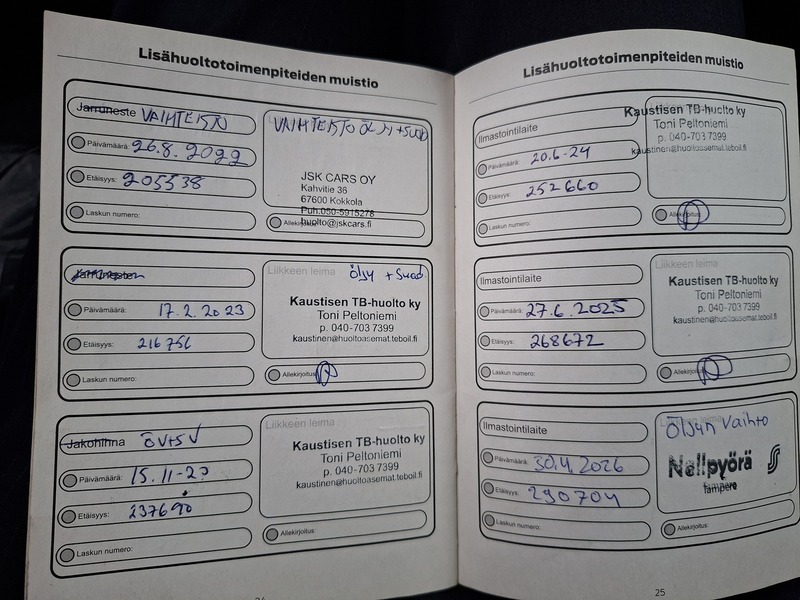 Lisähuoltotoimenpiteiden muistio
Jarruneste VAIHTEISTO
Päivämäärä: 26.8.2022
Etäisyys: 205538
Laskun numero:
VAIHTEISTO ÖLJY + SUOD
JSK CARS OY
Kahvitie 36
67600 Kokkola
Puh.050-5915278
huolto@jskcars.fi
Allekirjoitus:
Liikkeen leima Öljy + Suod.
Päivämäärä: 17.2.2023
Etäisyys: 216756
Laskun numero:
Kaustisen TB-huolto ky
Toni Peltoniemi
p. 040-703 7399
kaustinen@huoltoasemat.teboil.fi
Allekirjoitus:
Jakohihna ÖV+SV
Päivämäärä: 15.11-23
Etäisyys: 237690
Laskun numero:
Liikkeen leima
Kaustisen TB-huolto ky
Toni Peltoniemi
p. 040-703 7399
kaustinen@huoltoasemat.teboil.fi
Allekirjoitus:
Lisähuoltotoimenpiteiden muistio
Ilmastointilaite
Päivämäärä: 20.6-24
Etäisyys: 252660
Laskun numero:
Kaustisen TB-huolto ky
Toni Peltoniemi
p. 040-703 7399
kaustinen@huoltoasemat.teboil.fi
Allekirjoitus:
Ilmastointilaite
Päivämäärä: 27.6.2025
Etäisyys: 268672
Laskun numero:
Kaustisen TB-huolto ky
Toni Peltoniemi
p. 040-703 7399
kaustinen@huoltoasemat.teboil.fi
Allekirjoitus:
Ilmastointilaite
Päivämäärä: 30.4.2026
Etäisyys: 290704
Laskun numero:
Öljyn vaihto
Nelipyörä
Tampere
Allekirjoitus:
25